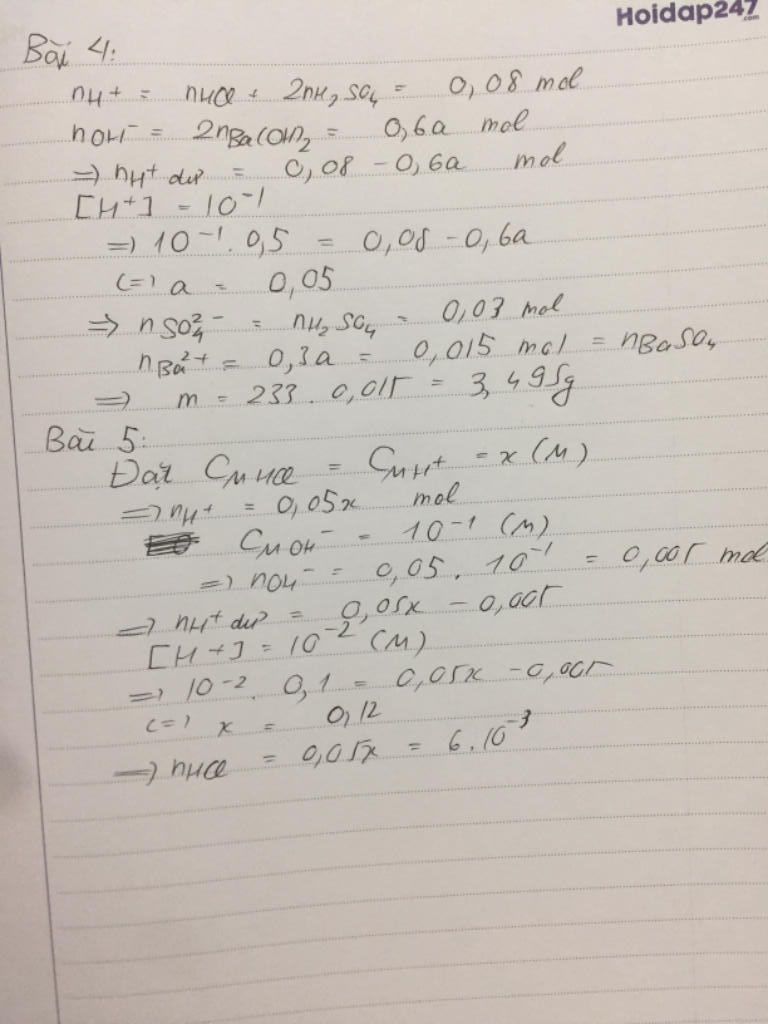 Hoidap247.com
Bài 4:
nH+ = nHCl + 2nH2SO4 = 0,08 mol
nOH- = 2nBa(OH)2 = 0,6a mol
=> nH+ dư = 0,08 - 0,6a mol
[H+] = 10^-1
=> 10^-1. 0,5 = 0,08 - 0,6a
<=> a = 0,05
=> nSO4^2- = nH2SO4 = 0,03 mol
nBa^2+ = 0,3a = 0,015 mol = nBaSO4
=> m = 233. 0,015 = 3,495g
Bài 5:
Đặt CM HCl = CM H+ = x (M)
=> nH+ = 0,05x mol
CM OH- = 10^-1 (M)
=> nOH- = 0,05. 10^-1 = 0,005 mol
=> nH+ dư = 0,05x - 0,005
[H+] = 10^-2 (M)
=> 10^-2. 0,1 = 0,05x - 0,005
<=> x = 0,12
=> nHCl = 0,05x = 6.10^-3